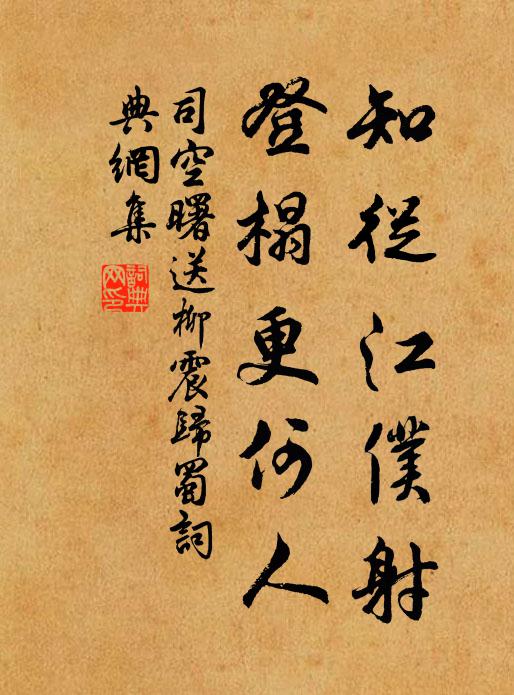 知從江僕射
登榻更何人
司空曙送柳震歸蜀詞
典網集
詞典網印